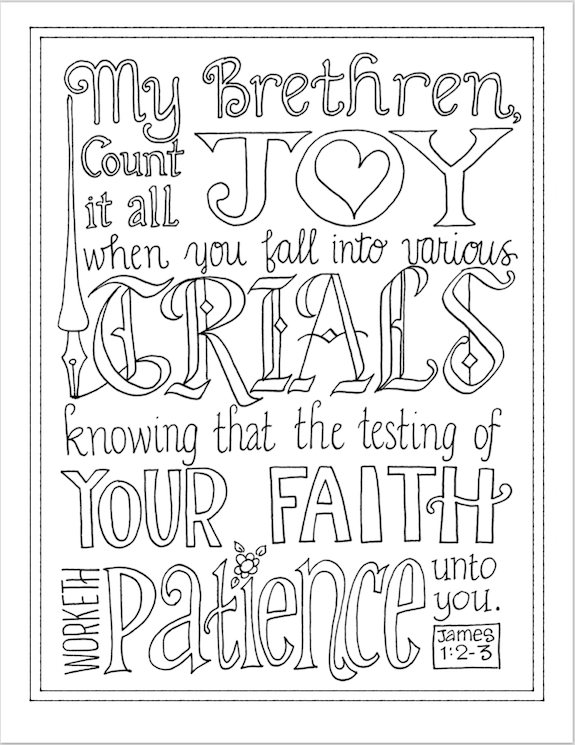 My Brethren,
Count
it all
JOY
when you fall into various
TRIALS
knowing that the testing of
YOUR FAITH
WORKETH
Patience
unto
you.
James
1:2-3